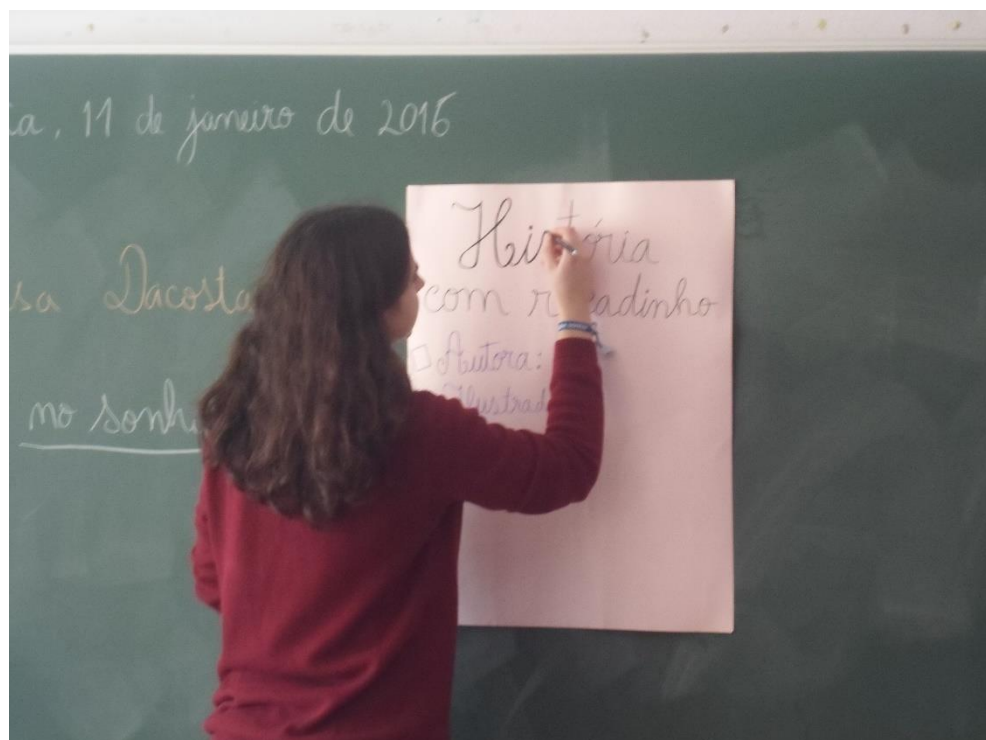 ia, 11 de janeiro de 2016
sa Dacosta
no sonh
História
com r adinho
Autora:
Ilustrad